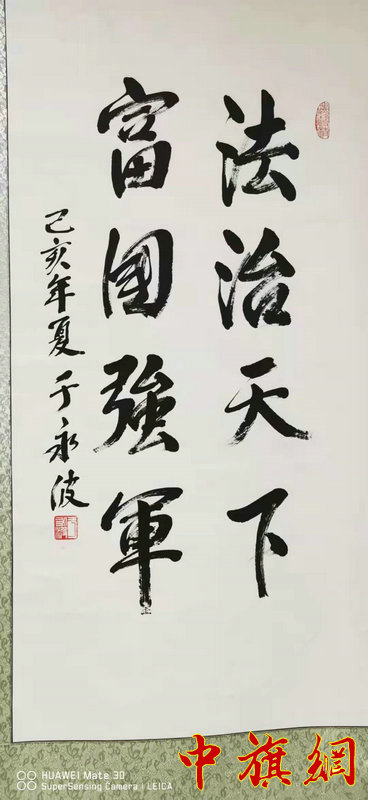 法治天下
富国強軍
己亥年夏于永波
HUAWEI Mate 30
SuperSensing Camera | LEICA
中旗網